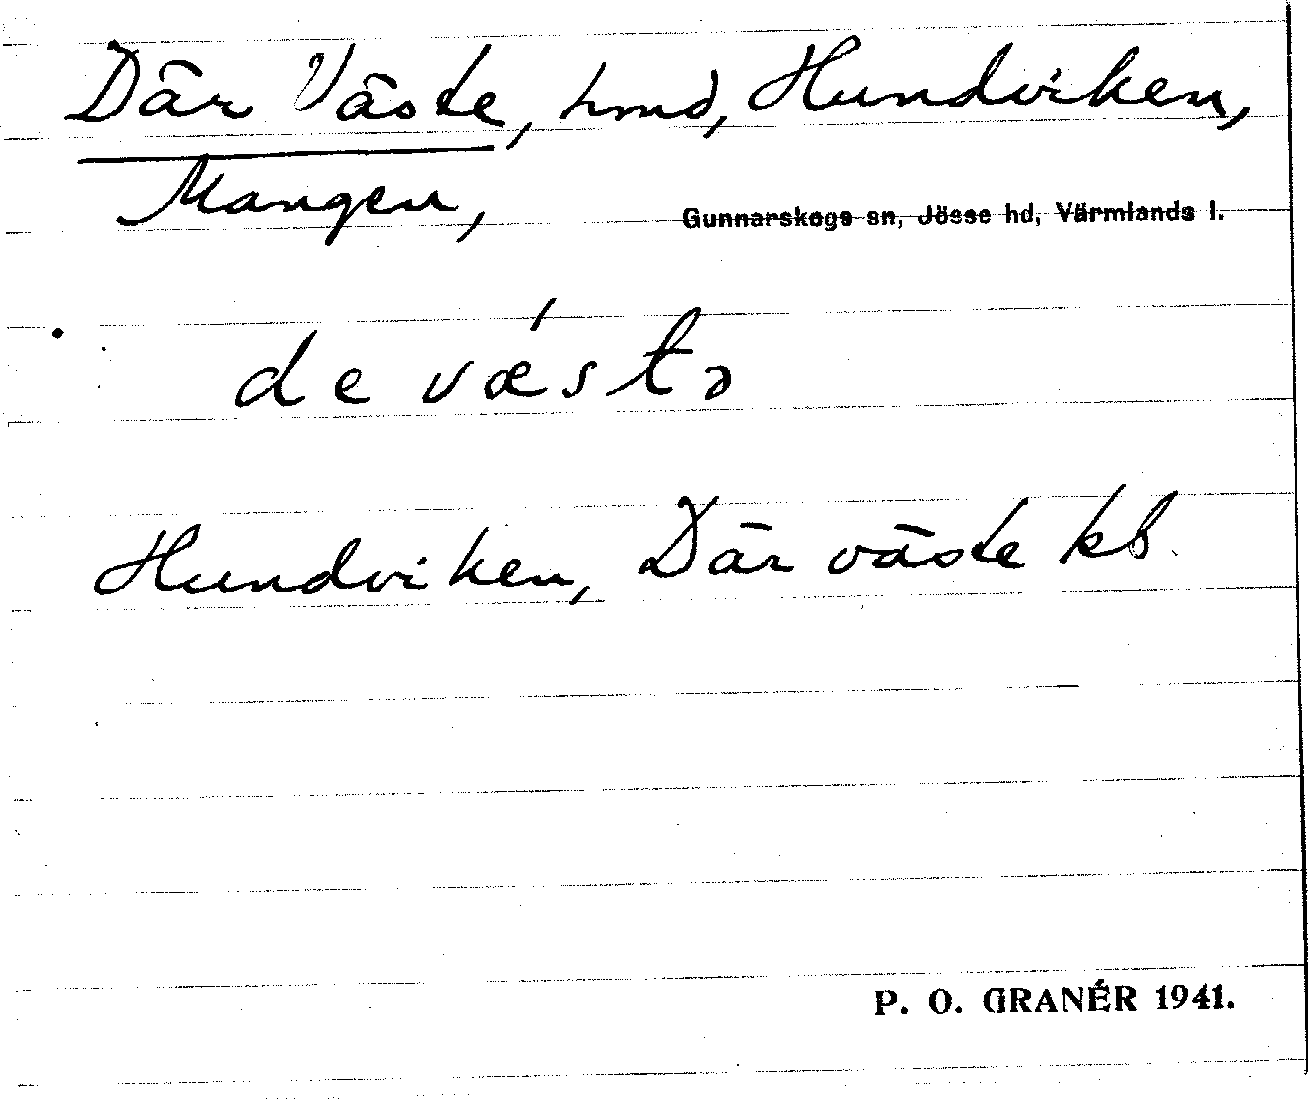 Där Väste, hmd, Hundviken,
Mangen,
Gunnarskogs sn, Jösse hd, Värmlands l.
de vǽstə
Hundviken, Där väste kb.
P. O. GRANÉR 1941.